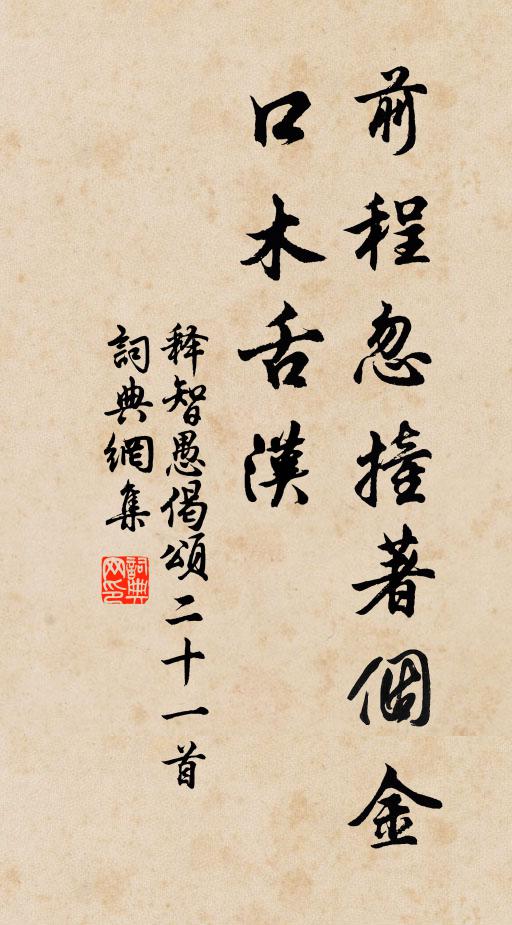 前程忽撞著個金
口木舌漢
释智愚偈頌二十一首
詞典網集
詞典
网印